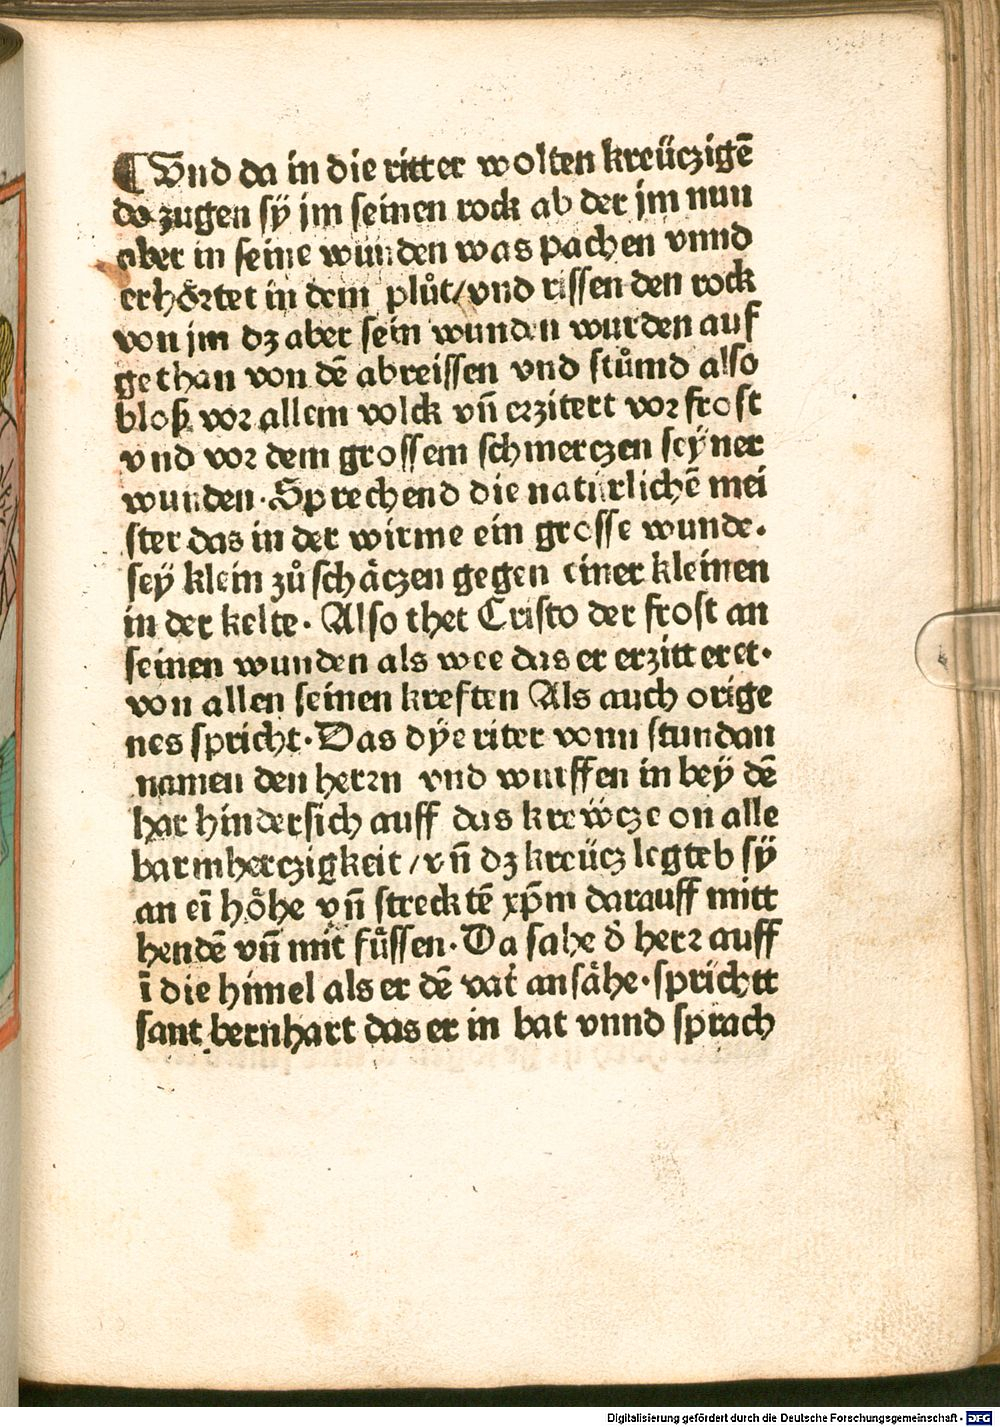 ¶ Vnd da in die ritter wolten kreüczigē
do zugen sÿ jm seinen rock ab der jm nun
aber in seine wunden was pachen vnnd
erhoͤrtet in dem plůt/vnd rissen den rock
von jm dz aber sein wunden wurden auf
gethan von dē abreissen vnd stůmd also
bloß vor allem volck vn̄ erzitert vor frost
vnd vor dem grossem schmerczen seyner
wunden. Sprechend die natürlichē mei
ster das in der wirme ein grosse wunde.
seÿ klein zů schäczen gegen einer kleinen
in der kelte. Also thet Cristo der frost an
seinen wunden als wee das er erzitteret.
von allen seinen kreften Als auch orige
nes spricht. Das dÿe riter vonn stundan
namen den herrn vnd wurffen in beÿ dē
har hindersich auff das kreẅcze on alle
barmherczigkeit/vn̄ dz kreücz legteb sÿ
an eī hoͤhe vn̄ strecktē xp̄m darauff mitt
hendē vn̄ mit fuͤssen. Da sahe d̓ herr auff
ī die himel als er dē vat̓ ansaͤhe. sprichtt
sant bernhart das er in bat vnnd sprach
Digitalisierung gefördert durch die Deutsche Forschungsgemeinschaft - DFG